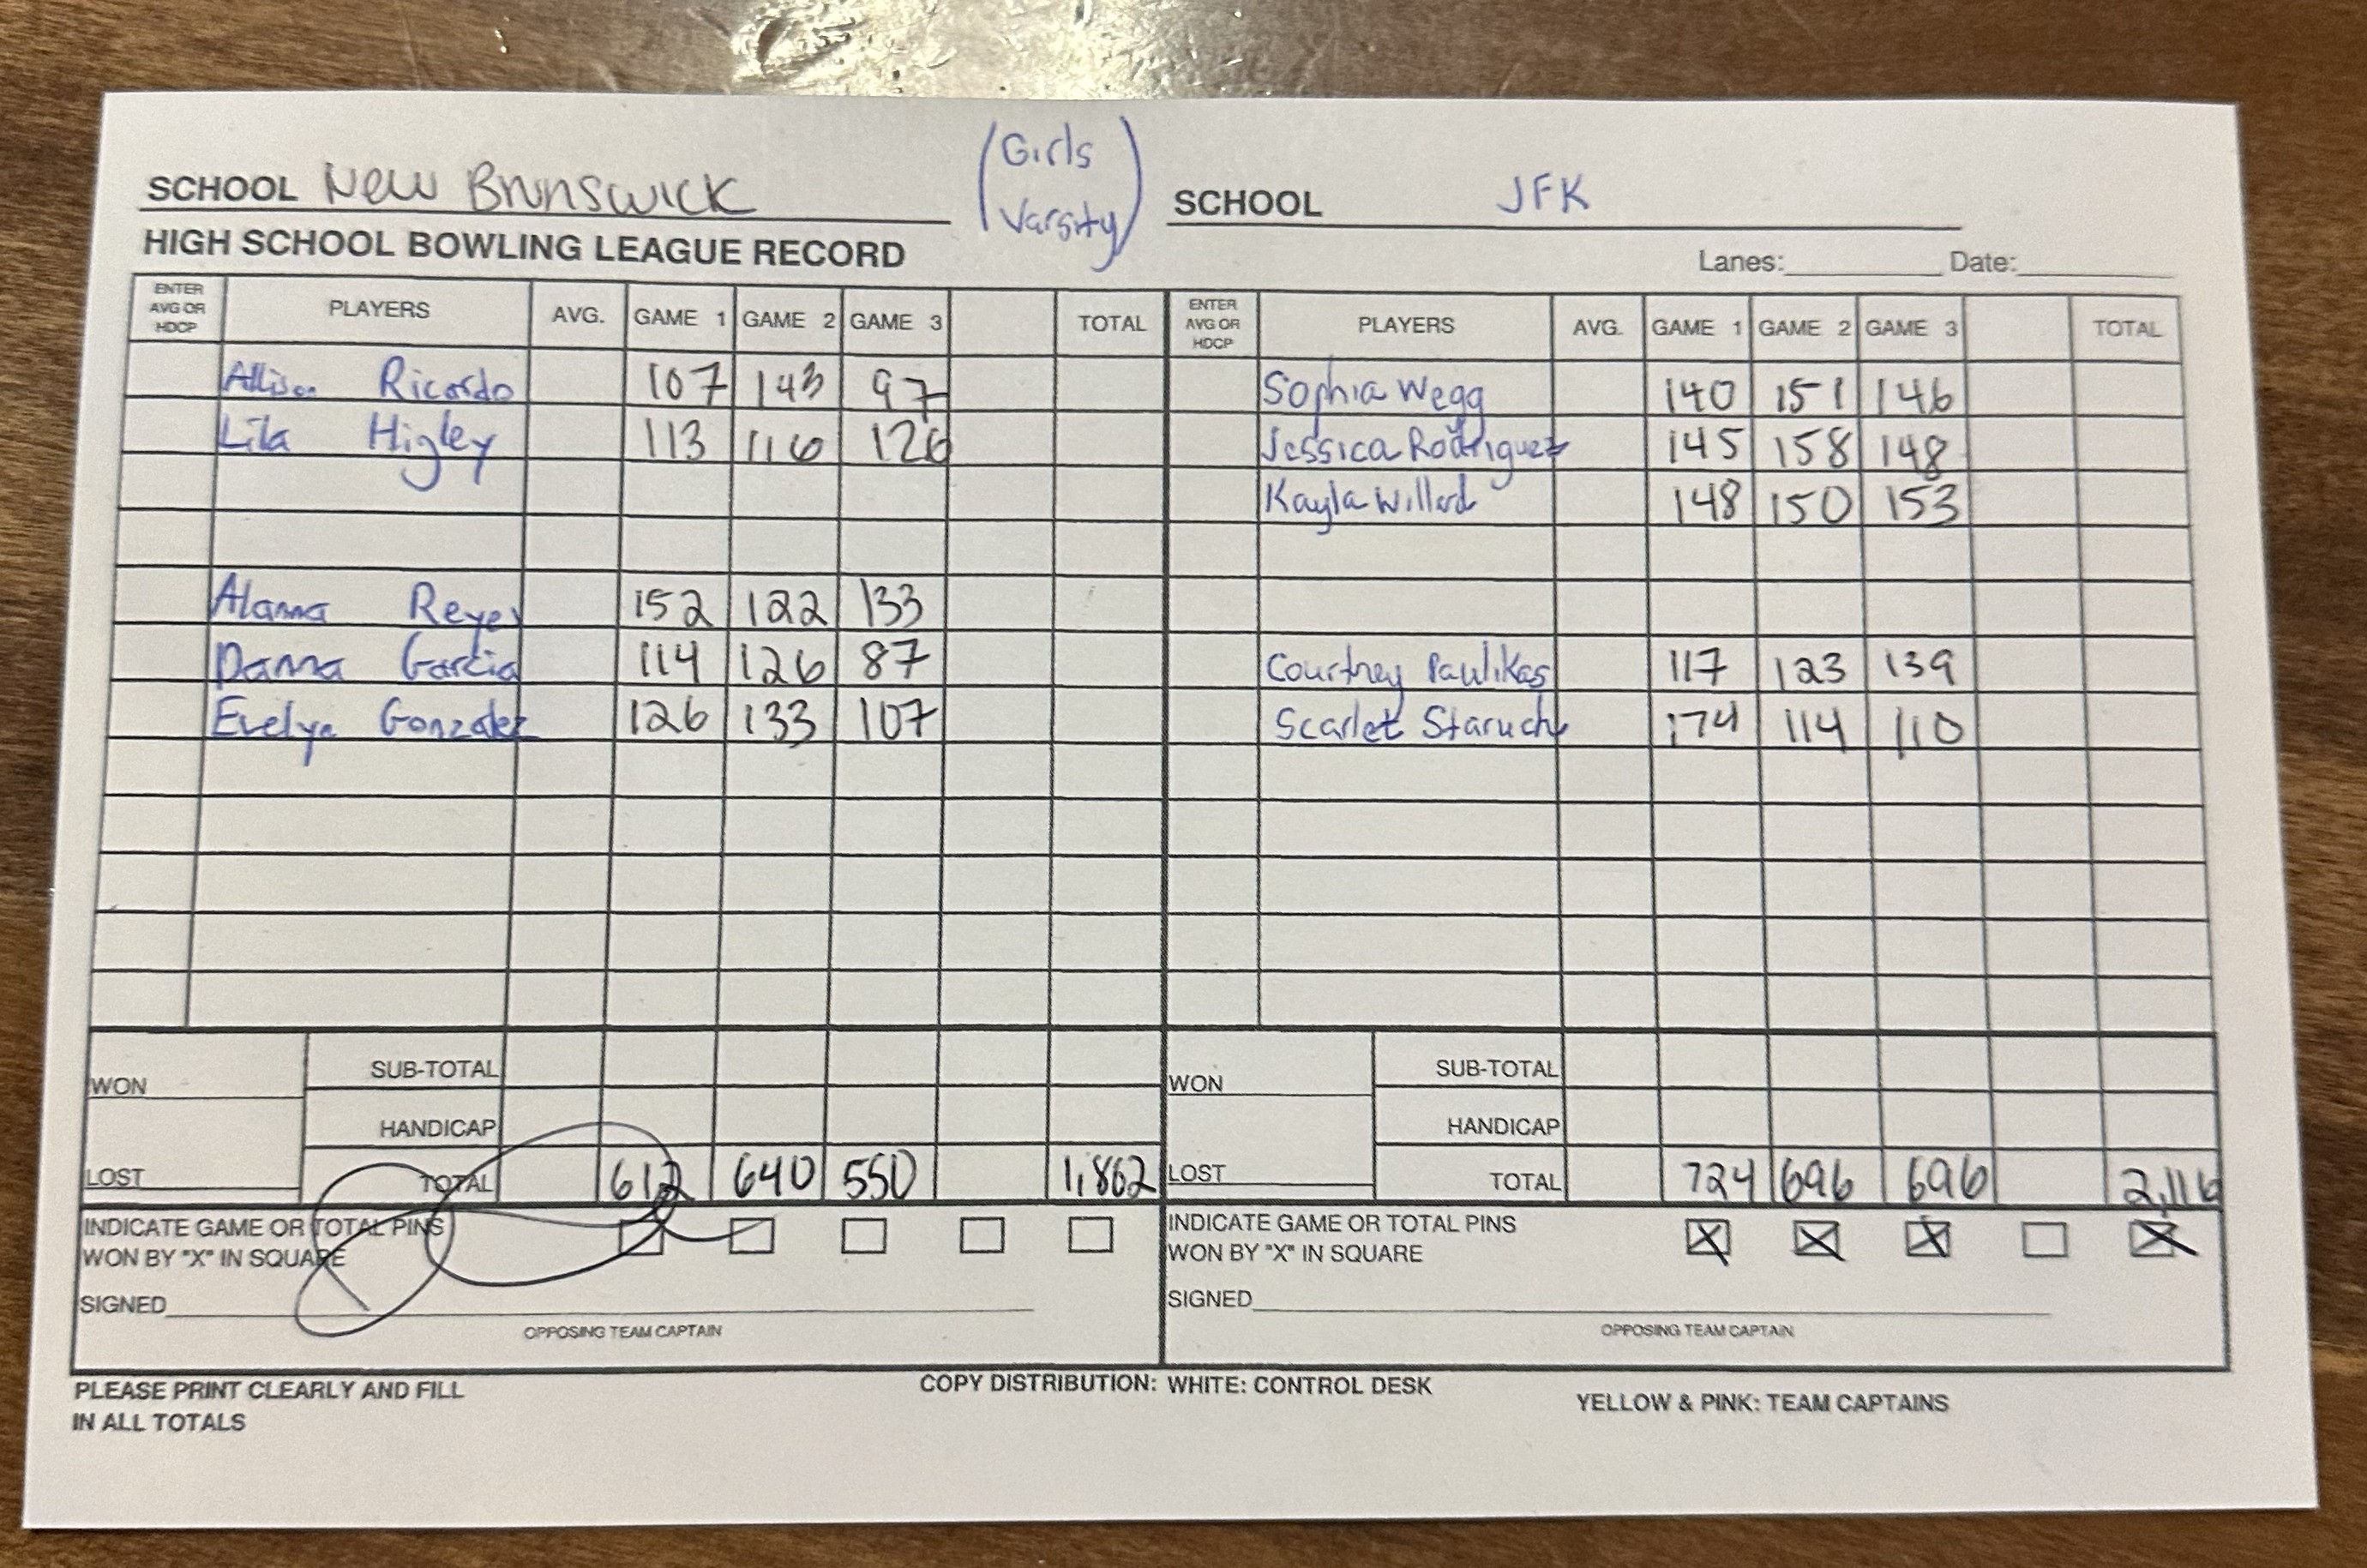 (Girls
Varsity)
SCHOOL New Brunswick SCHOOL JFK
HIGH SCHOOL BOWLING LEAGUE RECORD
Lanes: Date:
ENTER AVG OR HDCP PLAYERS AVG. GAME 1 GAME 2 GAME 3 TOTAL ENTER AVG OR HDCP PLAYERS AVG. GAME 1 GAME 2 GAME 3 TOTAL
Allison Ricardo 107 143 97 Sophia Wegg 140 151 146
Lila Higley 113 116 126 Jessica Rodriguez 145 158 148
Kayla Willard 148 150 153
Alanna Reyes 152 122 133
Danna Garcia 114 126 87 Courtney Paulikas 117 123 139
Evelyn Gonzalez 126 133 107 Scarlet Staruch 174 114 110
WON SUB-TOTAL WON SUB-TOTAL
HANDICAP HANDICAP
LOST TOTAL 612 640 550 1,802 LOST TOTAL 724 696 696 2,116
INDICATE GAME OR TOTAL PINS INDICATE GAME OR TOTAL PINS
WON BY "X" IN SQUARE WON BY "X" IN SQUARE X X X X
SIGNED SIGNED
OPPOSING TEAM CAPTAIN OPPOSING TEAM CAPTAIN
PLEASE PRINT CLEARLY AND FILL
IN ALL TOTALS
COPY DISTRIBUTION: WHITE: CONTROL DESK YELLOW & PINK: TEAM CAPTAINS